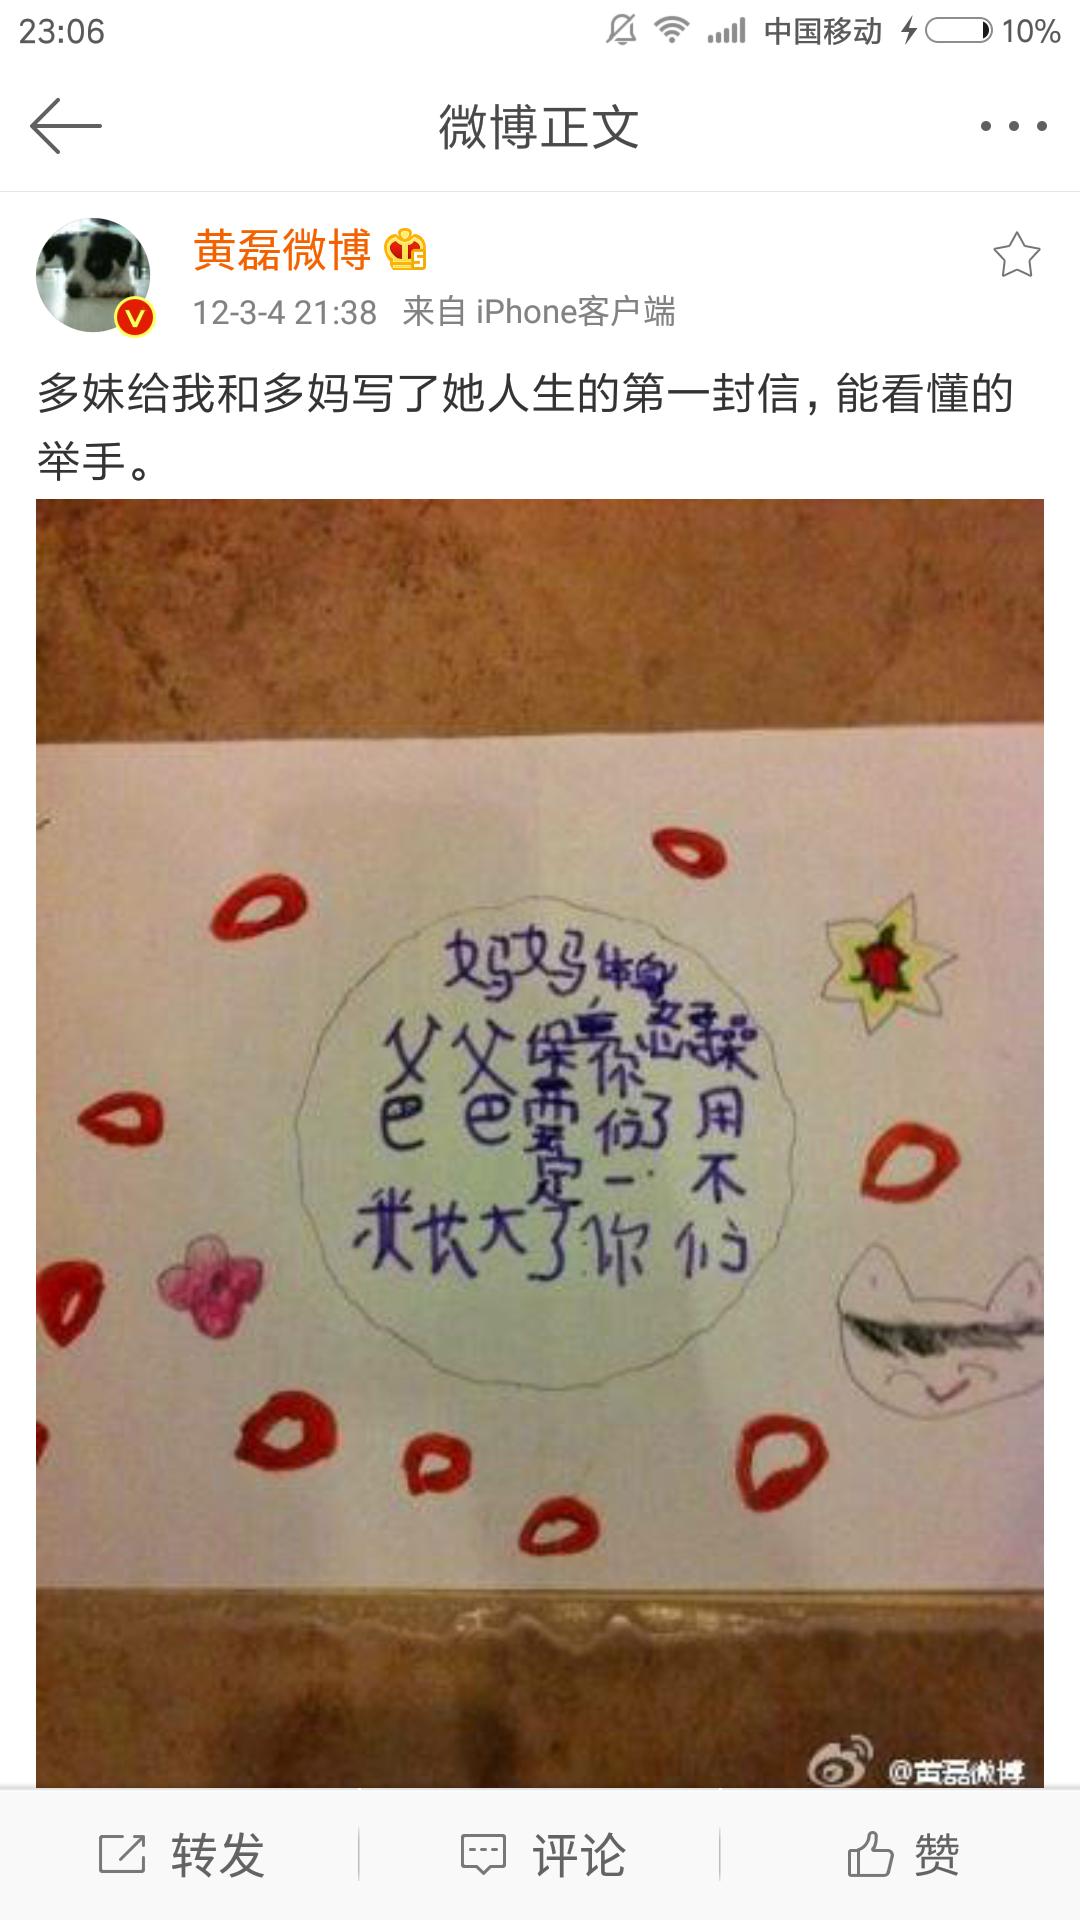 23:06 中国移动 10%
微博正文
黄磊微博
12-3-4 21:38 来自 iPhone客户端
多妹给我和多妈写了她人生的第一封信，能看懂的
举手。
妈妈体身
父父保重你
巴巴需们了用
定一不
我长大了你们
@黄磊微博
转发 评论 赞